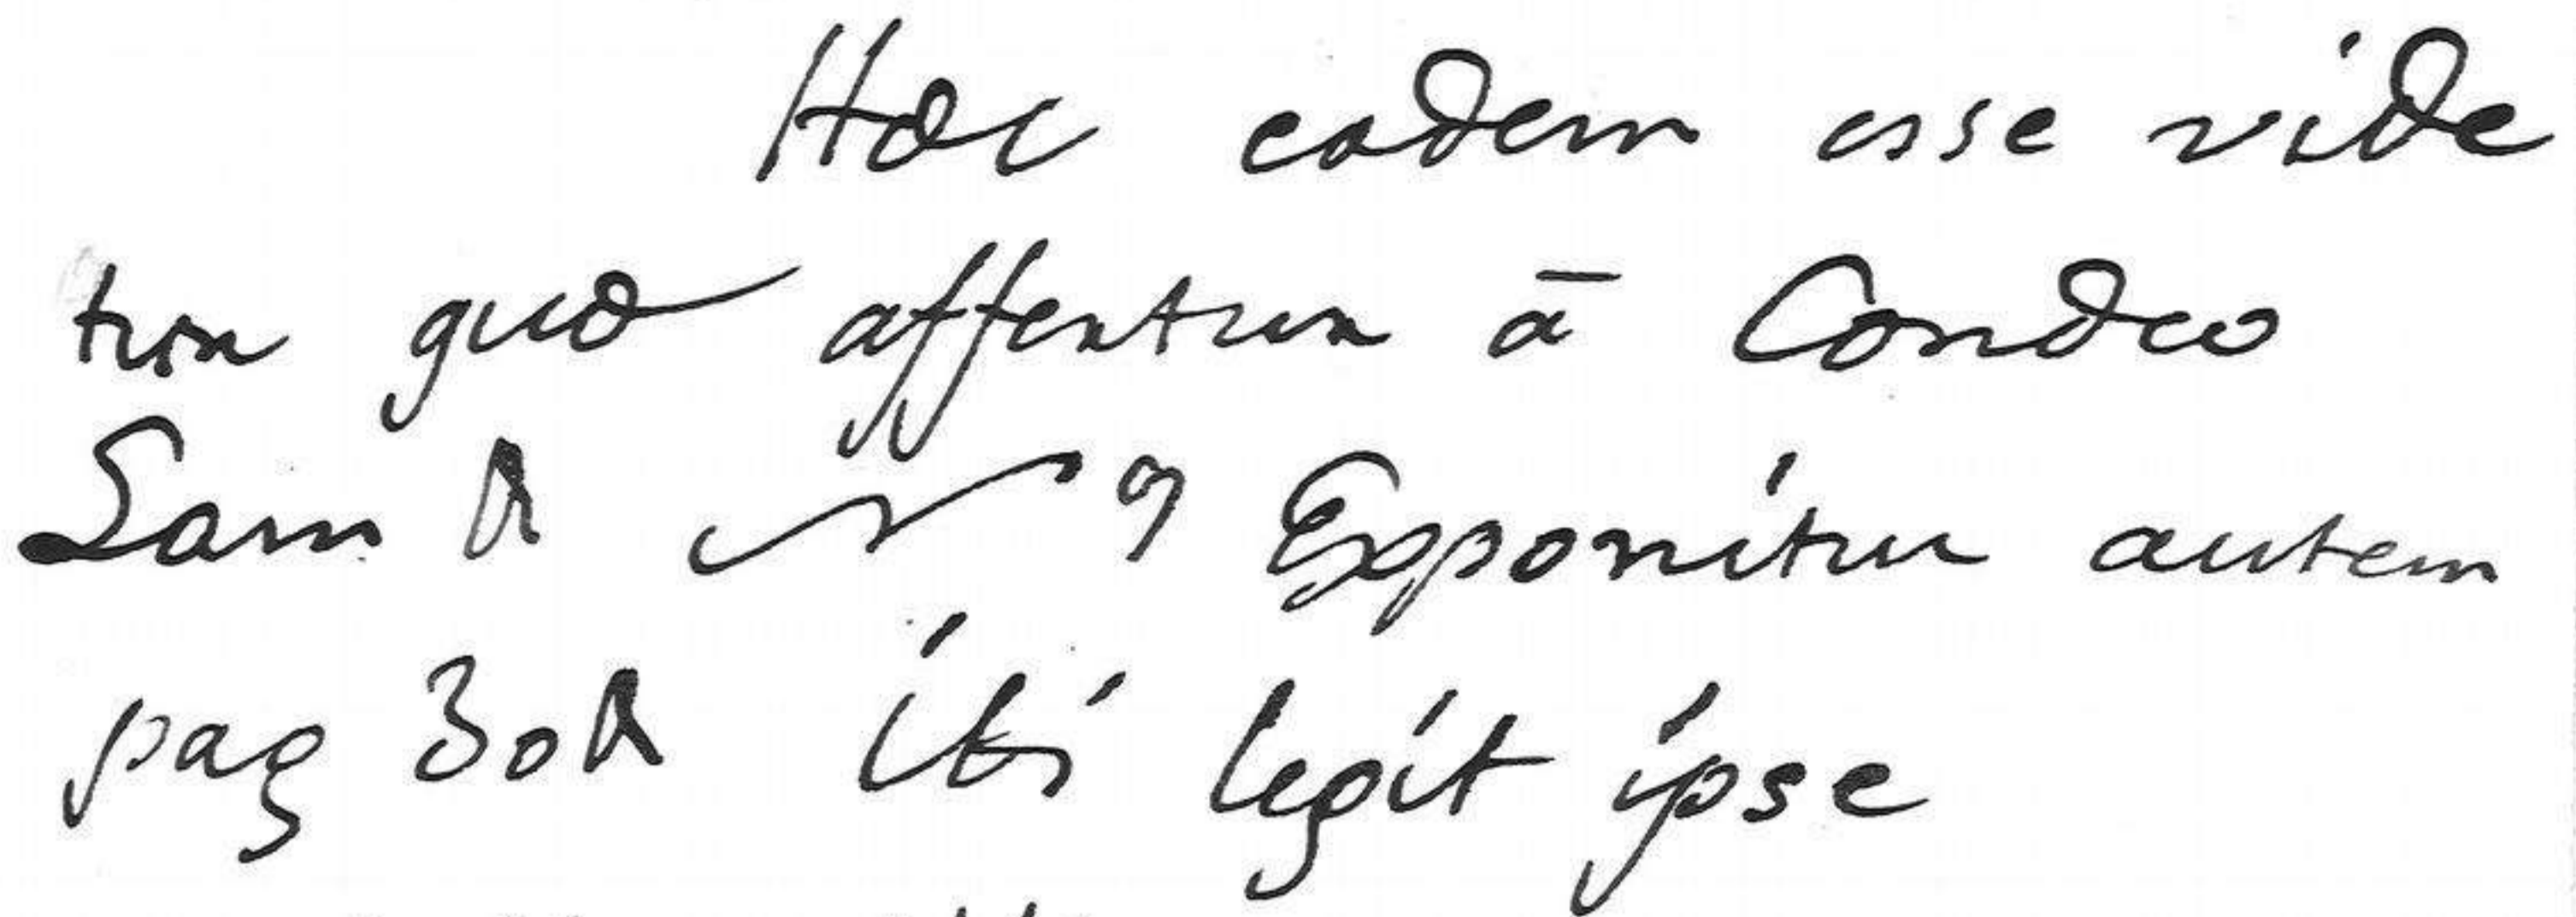 Hæc eadem esse vide
tur quæ affertur à Condeo
Sam A N 9 Exponitur autem
pag 30A ibi legit ipse